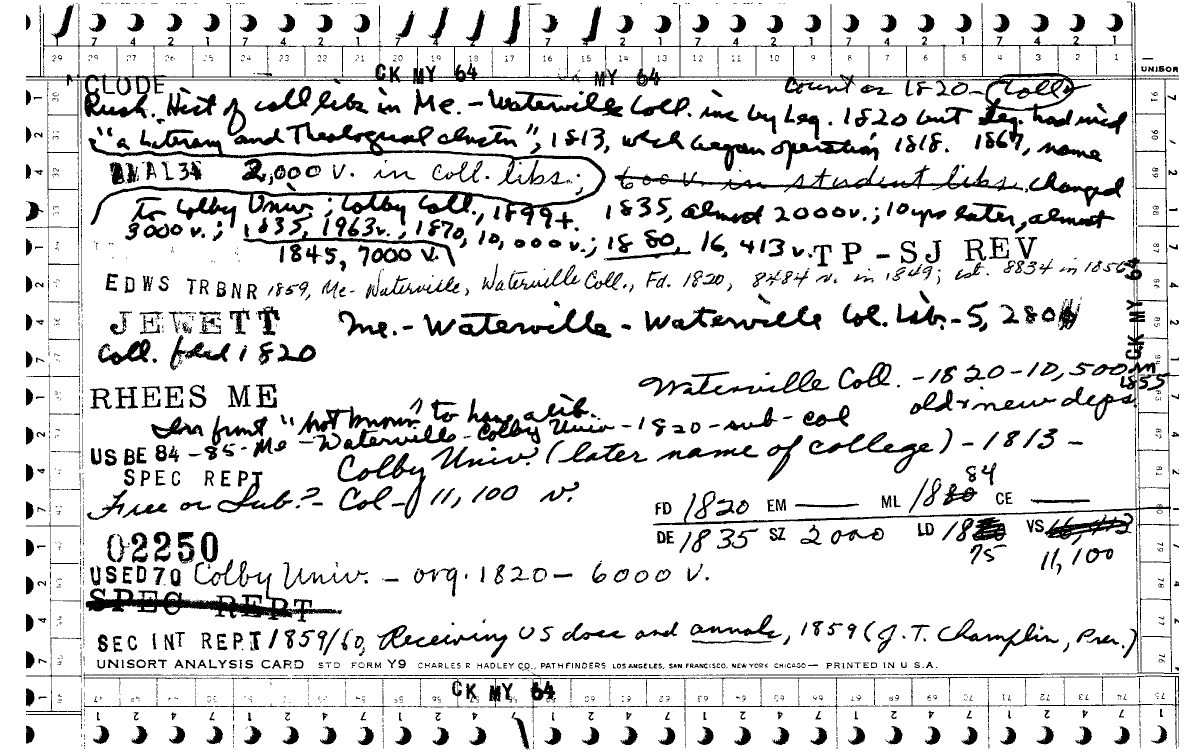 CK MY 64 MY 64 UNISOR
CLODE Count as 1820 - Colby
Rush. Hist of coll libs in Me. - Waterville Coll. inc by Leg. 1820 but Leg. had incd
"a Literary and Theological Instn", 1813, which began operation 1818. 1867, name
AL34 2,000 v. in coll. libs; 600 v. in student libs. changed
to Colby Univ; Colby Coll., 1899+. 1835, almost 2000 v.; 10 yrs later, almost
3000 v.; 1835, 1963 v.; 1870, 10,000 v.; 1880, 16,413 v. TP - SJ REV
1845, 7000 v.
EDWS TRBNR 1859, Me - Waterville, Waterville Coll., Fd. 1820, 8484 v. in 1849; est. 8834 in 1856
CK MY 64
JEWETT Me. - Waterville - Waterville Col. Lib. - 5,280
Coll. fded 1820
RHEES ME Waterville Coll. - 1820 - 10,500 in 1855
"not known" to have a lib. old & new deps.
US BE 84 - 85 - Me - Waterville - Colby Univ - 1820 - sub - col
SPEC REPT Colby Univ. (later name of college) - 1813 -
Free or Sub? - Col - 11,100 v.
FD 1820 EM — ML 1880 84 CE —
DE 1835 SZ 2000 LD 18 75 VS 16,413 11,100
02250
USED70 Colby Univ. - org. 1820 - 6000 v.
SPEC REPT
SEC INT REPT 1859/60, Receiving US docs and annals, 1859 (J. T. Champlin, Pres.)
UNISORT ANALYSIS CARD STD FORM Y9 CHARLES R HADLEY CO., PATHFINDERS LOS ANGELES, SAN FRANCISCO, NEW YORK CHICAGO — PRINTED IN U S A.
CK MY 64